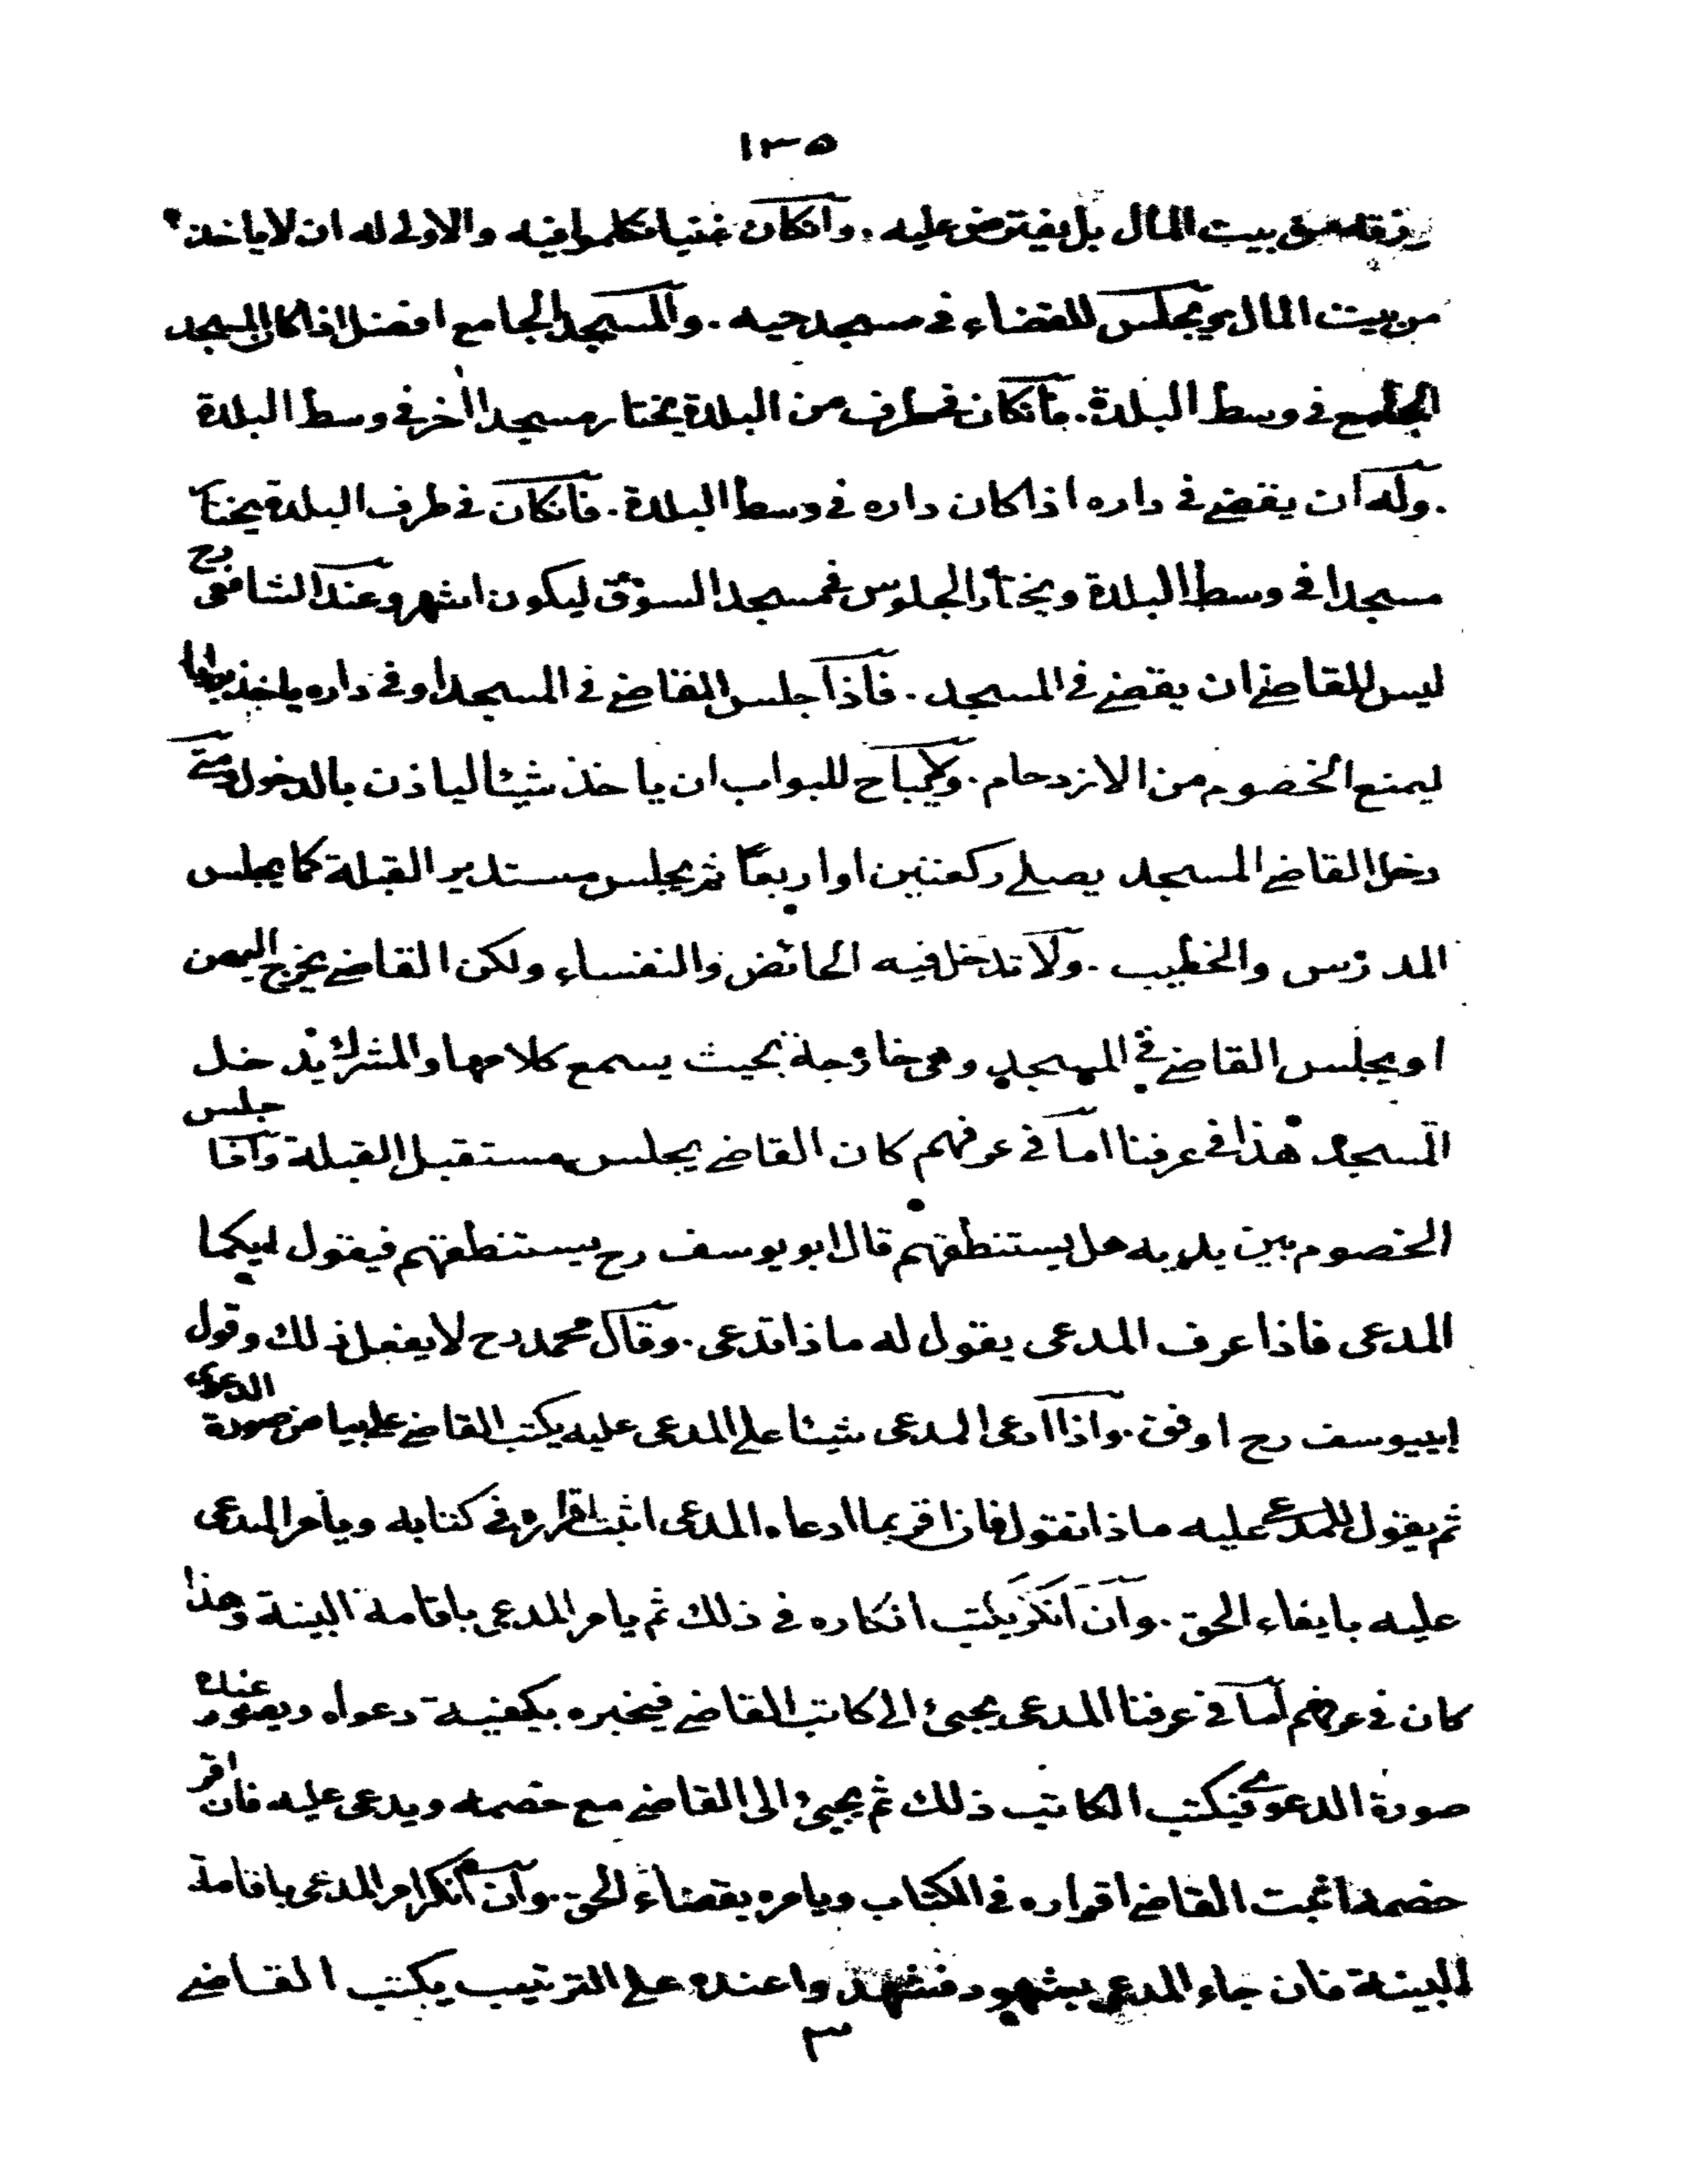 ١٣٥
رزقه من بيت المال بل يفترض عليه . وانكان غنيا تكلموا فيه والاولى له ان لا ياخذ
من بيت المال ويجلس للقضاء في مسجد حيه . والمسجد الجامع افضل اذا كان المسجد
الجامع في وسط البلدة . فانكان في طرف من البلدة يختار مسجدا اخر في وسط البلدة
. وله ان يقضي في داره اذا كان داره في وسط البلدة . فانكان في طرف البلدة يختار
مسجدا في وسط البلدة ويختار الجلوس في مسجد السوق ليكون اشهر وعند الشافعى رح
ليس للقاضي ان يقضي في المسجد . فاذا جلس القاضي في المسجد او في داره ياخذ بوابا
ليمنع الخصوم من الازدحام . ولا يباح للبواب ان ياخذ شيئا لياذن بالدخول ومتى
دخل القاضي المسجد يصلي ركعتين او اربعا ثم يجلس مستدير القبلة كما يجلس
المدرس والخطيب . ولا تدخل فيه الحائض والنفساء ولكن القاضي يخرج اليهن
او يجلس القاضي في المسجد وهى خارجة بحيث يسمع كلامها والمشرك يدخل
المسجد هذا في عرفنا اما في عرفهم كان القاضي يجلس مستقبل القبلة واذا جلس
الخصوم بين يديه هل يستنطقهم قال ابو يوسف رح يستنطقهم فيقول ايكما
المدعى فاذا عرف المدعى يقول له ماذا تدعى . وقال محمد رح لا يفعل ذلك وقول
ابييوسف رح اوفق . واذا ادعى المدعى شيئا على المدعى عليه يكتب القاضي على بياض صورة الدعوى
ثم يقول للمدعى عليه ماذا تقول فاذا اقر بما ادعاه المدعى اثبت اقراره في كتابه ويأمر المدعى
عليه بايفاء الحق . وان انكر يكتب انكاره في ذلك ثم يامر المدعى باقامة البينة وهذا
كان في عرفهم اما في عرفنا المدعى يجيئ الى كاتب القاضي فيخبره بكيفية دعواه ويصور عنده
صورة الدعوى فيكتب الكاتب ذلك ثم يجيئ الى القاضي مع خصمه ويدعى عليه فان اقر
خصمه اثبت القاضي اقراره في الكتاب ويامره بقضاء الحق . وان انكر امر المدعى باقامة
البينة فان جاء المدعى بشهود فشهدوا عنده على الترتيب يكتب القاضي
٣